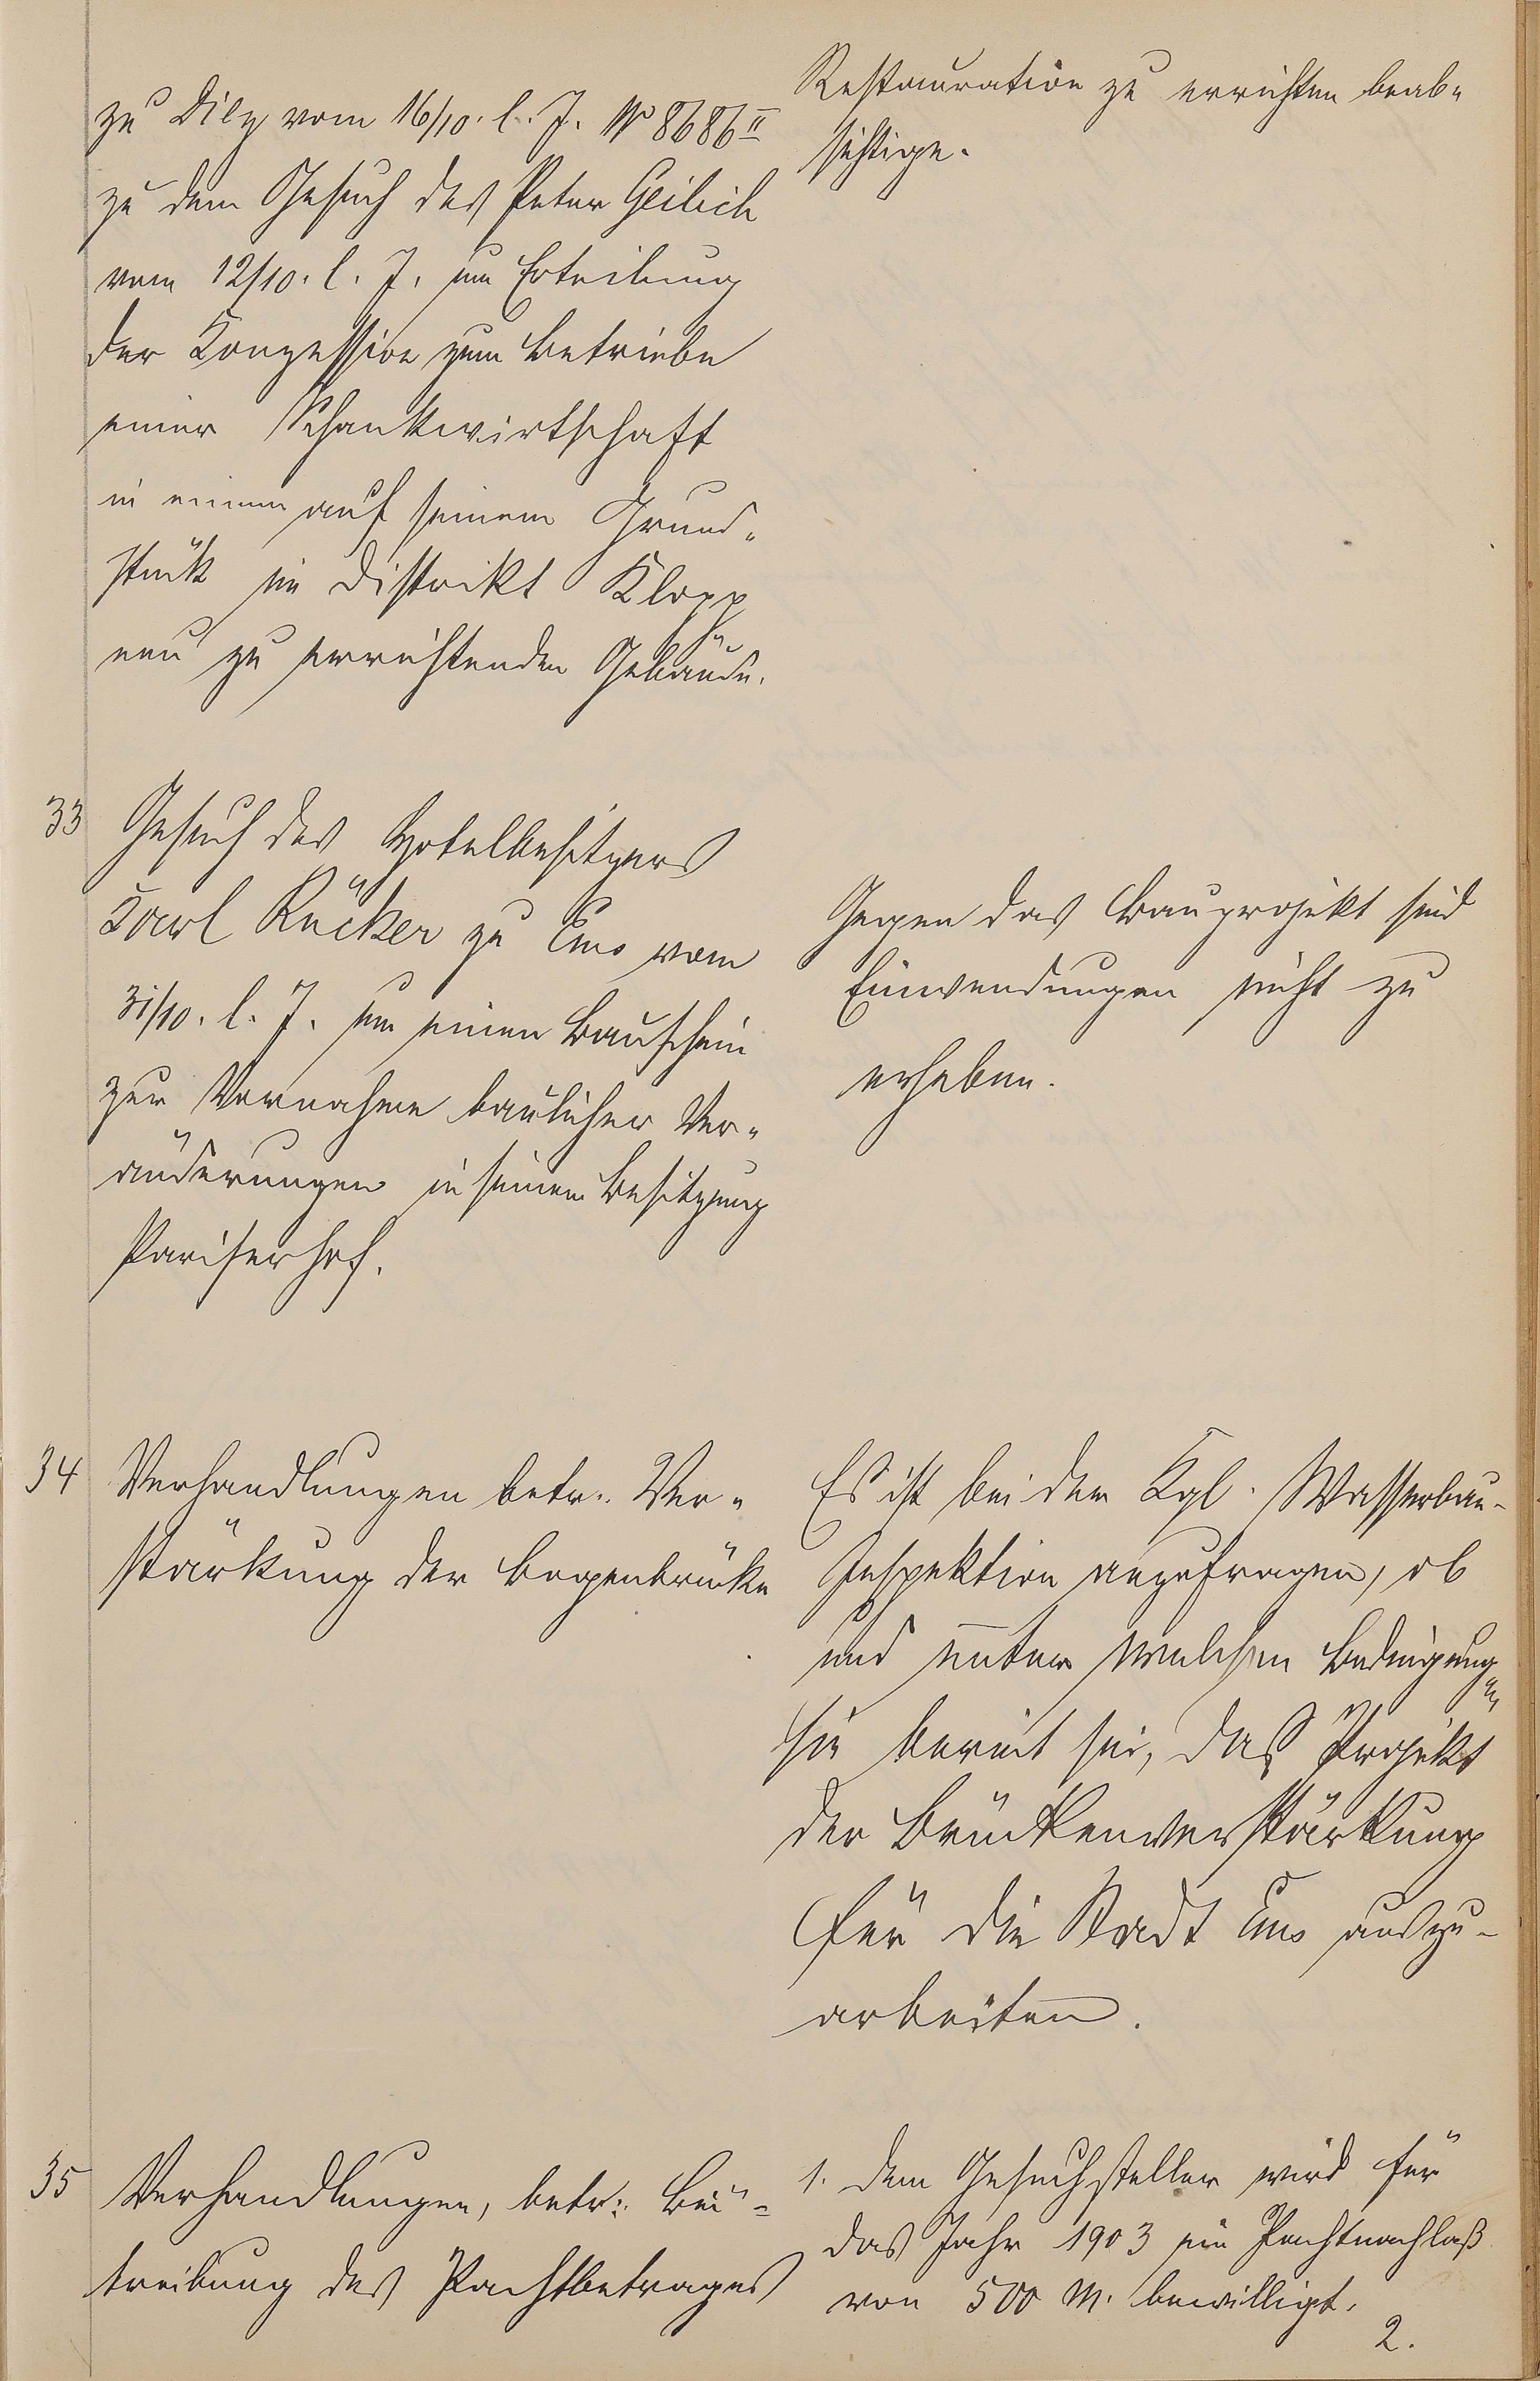 zu Diez vom 16/10. l. J. No 8686 II
zu dem Gesuch des Peter Geilich
vom 12/10. l. J. um Erteilung
der Konzession zum Betriebe
einer Schankwirtschaft
in einem auf seinem Grund-
stück im Distrikt Klopp
neu zu errichtenden Gebäude.
Restauration zu errichten beab-
sichtige.
33 Gesuch des Hotelbesitzers
Karl Rücker zu Ems vom
31/10. l. J. um einen Bauschein
zur Vornahme baulicher Ver-
änderungen in seinem Besitzung
Pariser Hof.
Gegen das Bauprojekt sind
Einwendungen nicht zu
erheben.
34 Verhandlungen betr. Ver-
stärkung der Bogenbrücke
Es ist bei der Kgl. Wasserbau-
Inspektion anzufragen, ob
und unter welchen Bedingungen
sie bereit sei, das Projekt
der Brückenverstärkung
für die Stadt Ems auszu-
arbeiten.
35 Verhandlungen, betr: Bei-
treibung des Pachtbetrages
1. dem Gesuchsteller wird für
das Jahr 1903 ein Pachtnachlaß
von 500 M. bewilligt.
2.